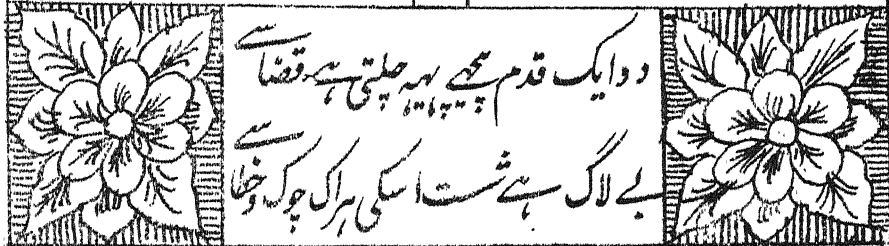 دو ایک قدم پیچھے یہ چلتی ہے قضا سے
بے لاگ ہے شست اسکی ہر اک چوک و خطا سے